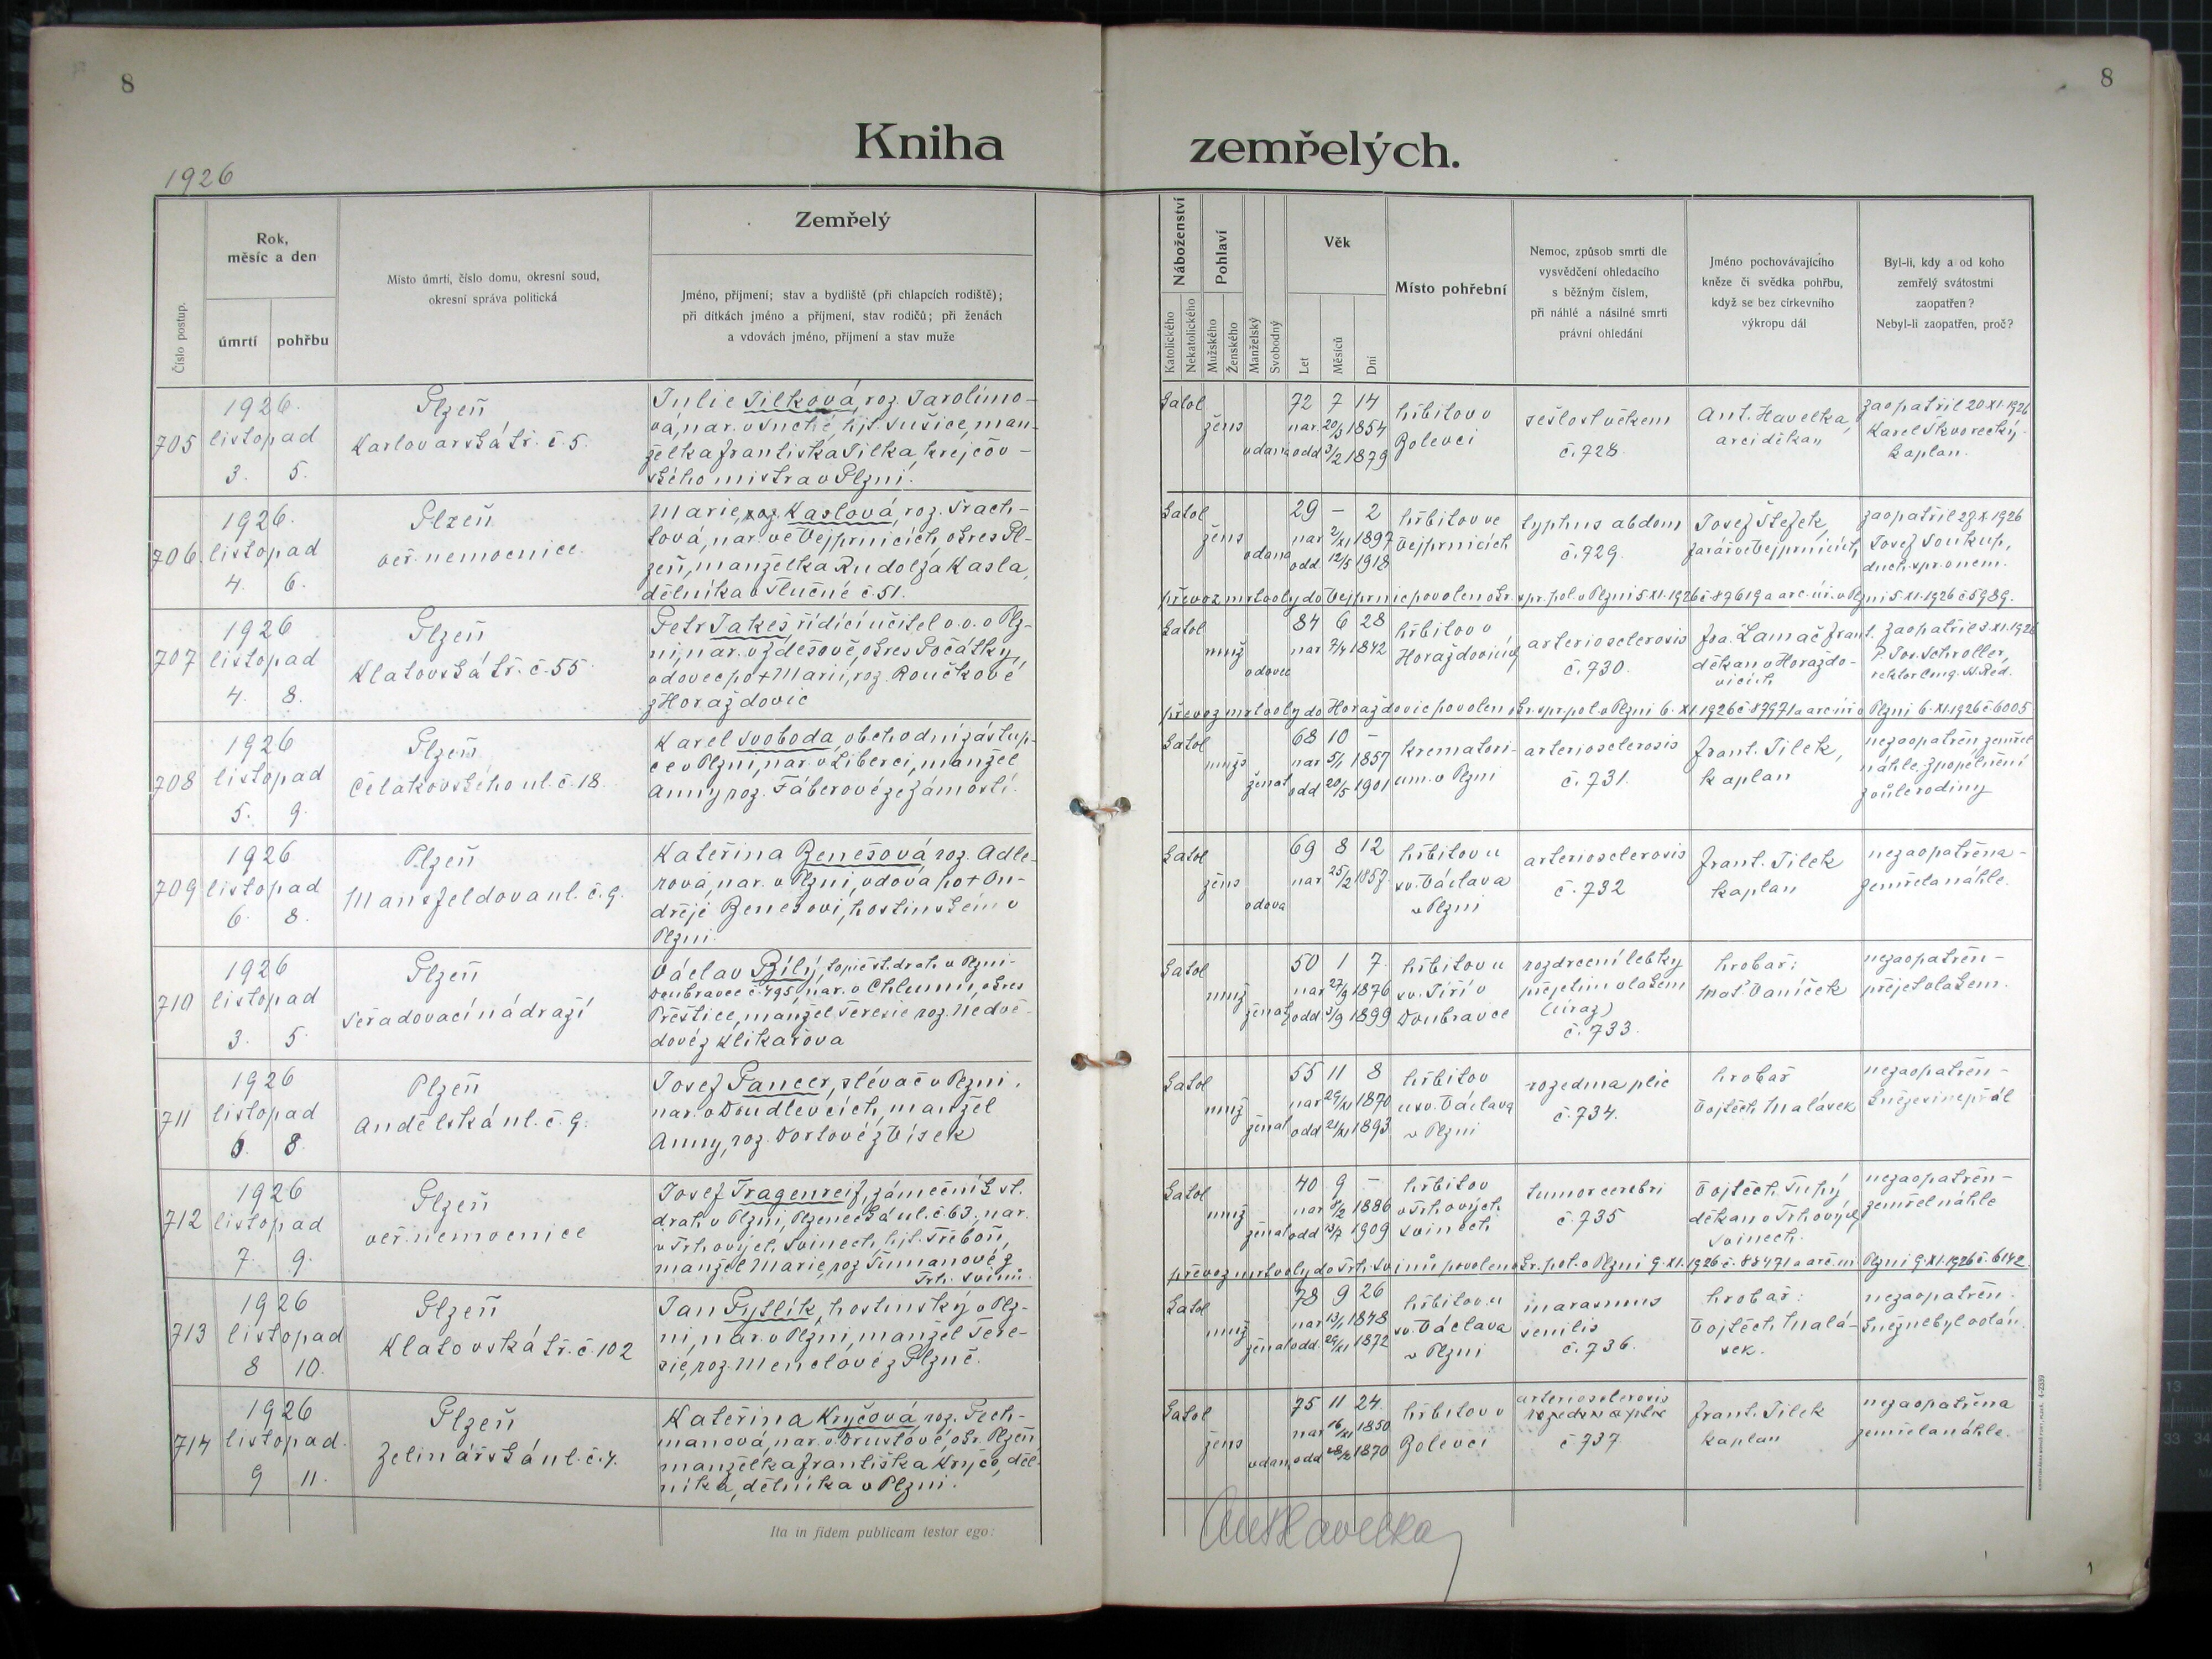 8
8
Kniha zemřelých.
1926
Číslo postup.
Rok,
měsíc a den
úmrtí
pohřbu
Místo úmrtí, číslo domu, okresní soud,
okresní správa politická
Zemřelý
Jméno, příjmení; stav a bydliště (při chlapcích rodiště);
při dítkách jméno a příjmení, stav rodičů; při ženách
a vdovách jméno, příjmení a stav muže
Náboženství
Katolického
Nekatolického
Pohlaví
Mužského
Ženského
Manželský
Svobodný
Věk
Let
Měsíců
Dní
Místo pohřební
Nemoc, způsob smrti dle
vysvědčení ohledacího
s běžným číslem,
při náhlé a násilné smrti
právní ohledání
Jméno pochovávajícího
kněze či svědka pohřbu,
když se bez církevního
výkropu dál
Byl-li, kdy a od koho
zemřelý svátostmi
zaopatřen?
Nebyl-li zaopatřen, proč?
705
1926.
listopad
3. 5.
Plzeň
Karlovarská tř. č. 5.
Julie Jilková, roz. Jarolímo-
vá, nar. v Suché, hjt. Sušice, man-
želka Františka Jilka, krejčov-
ského mistra v Plzni.
katol
žens
vdaná
72 7 14
nar. 20/3 1854
odd 3/2 1879
hřbitov v
Bolevci
sešlost věkem
č. 728.
Ant. Havelka,
arciděkan
zaopatřil 20.XI.1926
Karel Skvorecký
kaplan.
706.
1926.
listopad
4. 6.
Plzeň
veř. nemocnice.
Marie, roz. Kaslová, roz. Trach-
tová, nar. ve Vejprnicích, okres Pl-
zeň, manželka Rudolfa Kasla,
dělníka v Tlučné č. 51.
katol
žens
vdaná
29 – 2
nar 2/XI 1897
odd. 12/5 1918
hřbitov ve
Vejprnicích
typhus abdom
č. 729.
Josef Štefek,
farář ve Vejprnicích
zaopatřil 27.X.1926
Josef Soukup,
duch. spr. v nem.
převoz mrtvoly do Vejprnic povolen okr. spr. pol. v Plzni 5.XI.1926 č 89619 a arc. úř. v Plzni 5.XI.1926 č 5989.
707
1926
listopad
4. 8.
Plzeň
Klatovská tř. č. 55
Petr Jakeš řídící učitel v. v. v Plz-
ni, nar. v Zdešově, okres Počátky,
vdovec po + Marii, roz. Roučkové
z Horažďovic
katol
muž
vdovec
84 6 28
nar 7/4 1842
hřbitov v
Horažďovicích
arteriosclerosis
č. 730.
Fra. Lamač Frant.
děkan v Horaždo-
vicích
zaopatřil 3.XI.1926
P. Jos. Schroller,
rektor Cong. SS. Red.
převoz mrtvoly do Horažďovic povolen okr. spr. pol. v Plzni 6.XI.1926 č 89971 a arc. úř. v Plzni 6.XI.1926 č 6005
708
1926
listopad
5. 9.
Plzeň
Čelakovského ul. č. 18.
Karel Svoboda, obchodní zástup-
ce v Plzni, nar. v Liberci, manžel
Anny roz. Fáberové ze Zámostí.
katol
muž
ženat
68 10 –
nar 5/1 1857
odd 20/5 1901
kremator-
um. v Plzni
arteriosclerosis
č. 731.
Frant. Jílek,
kaplan
nezaopatřen, zemřel
náhle, zpopelnění
z vůle rodiny
709
1926
listopad
6. 8.
Plzeň
Mansfeldova ul. č. 9.
Kateřina Benešová roz. Adle-
rová, nar. v Plzni, vdova po + On-
dřeji Benešovi, hostinském v
Plzni.
katol
žens
vdova
69 8 12
nar 25/2 1857.
hřbitov u
sv. Václava
v Plzni
arteriosclerosis
č. 732
Frant. Jílek
kaplan
nezaopatřena -
zemřela náhle.
710
1926
listopad
3. 5.
Plzeň
seřaďovací nádraží
Václav Bílý, topič st. drah. v Plzni-
Doubravce č. 495, nar. v Chlumu, okres
Přeštice, manžel Terezie roz. Nedvě-
dové z Klikařova
katol
muž
ženat
50 1 7.
nar 27/9 1876
odd 5/9 1899
hřbitov u
sv. Jiří v
Doubravce
rozdrcení lebky
přejetím vlakem
(úraz)
č. 733.
hrobař:
Mat. Vaníček
nezaopatřen -
přejet vlakem.
711
1926
listopad
6. 8.
Plzeň
Andělská ul. č. 9.
Josef Pancer, slévač v Plzni,
nar. v Doudlevcích, manžel
Anny, roz. Dortové z Vísek
katol
muž
ženat
55 11 8
nar 29/XI 1870
odd 21/XI 1893
hřbitov
u sv. Václava
v Plzni
rozedma plic
č. 734.
hrobař
Vojtěch Malásek
nezaopatřen -
kněze si nepřál
712
1926
listopad
7. 9.
Plzeň
veř. nemocnice
Josef Tragenreif, zámečník st.
drah. v Plzni, Plzenecká ul. č. 63, nar.
v Trhových Svinech, hjt. Třeboň,
manžel Marie, roz Tumanové z
Trh. Svinů.
katol
muž
ženat
40 9 –
nar 8/2 1886
odd 13/7 1909
hřbitov
v Trhových
Svinech
tumor cerebri
č. 735
Vojtěch Tupý
děkan v Trhových
Svinech.
nezaopatřen -
zemřel náhle
převoz mrtvoly do Trh. Svinů povolen okr. pol. v Plzni 9.XI.1926 č. 88471 a arc. úř. Plzni 9.XI.1926 č. 6142.
713
1926
listopad
8 10.
Plzeň
Klatovská tř. č. 102
Jan Pytlík, hostinský v Plz-
ni, nar. v Plzni, manžel Tere-
zie, roz. Menclové z Plzně.
katol
muž
ženat
78 9 26
nar 13/1 1848
odd. 29/XI 1872
hřbitov u
sv. Václava
v Plzni
marasmus
senilis
č. 736.
hrobař:
Vojtěch Malá-
sek.
nezaopatřen.
kněz nebyl volán.
714
1926
listopad.
9 11.
Plzeň
Zelinářská ul. č. 4.
Kateřina Krycová, roz. Pech-
manová, nar. v Druztové, okr. Plzeň
manželka Františka Kryce, děl-
níka, dělníka v Plzni.
katol
žens
vdaná
75 11 24.
nar 16/XI 1850
odd 1870
hřbitov v
Bolevci
arteriosclerosis
rozedma plic
č 737.
Frant. Jílek
kaplan
nezaopatřena
zemřela náhle.
Ita in fidem publicam testor ego:
Ant Havelka